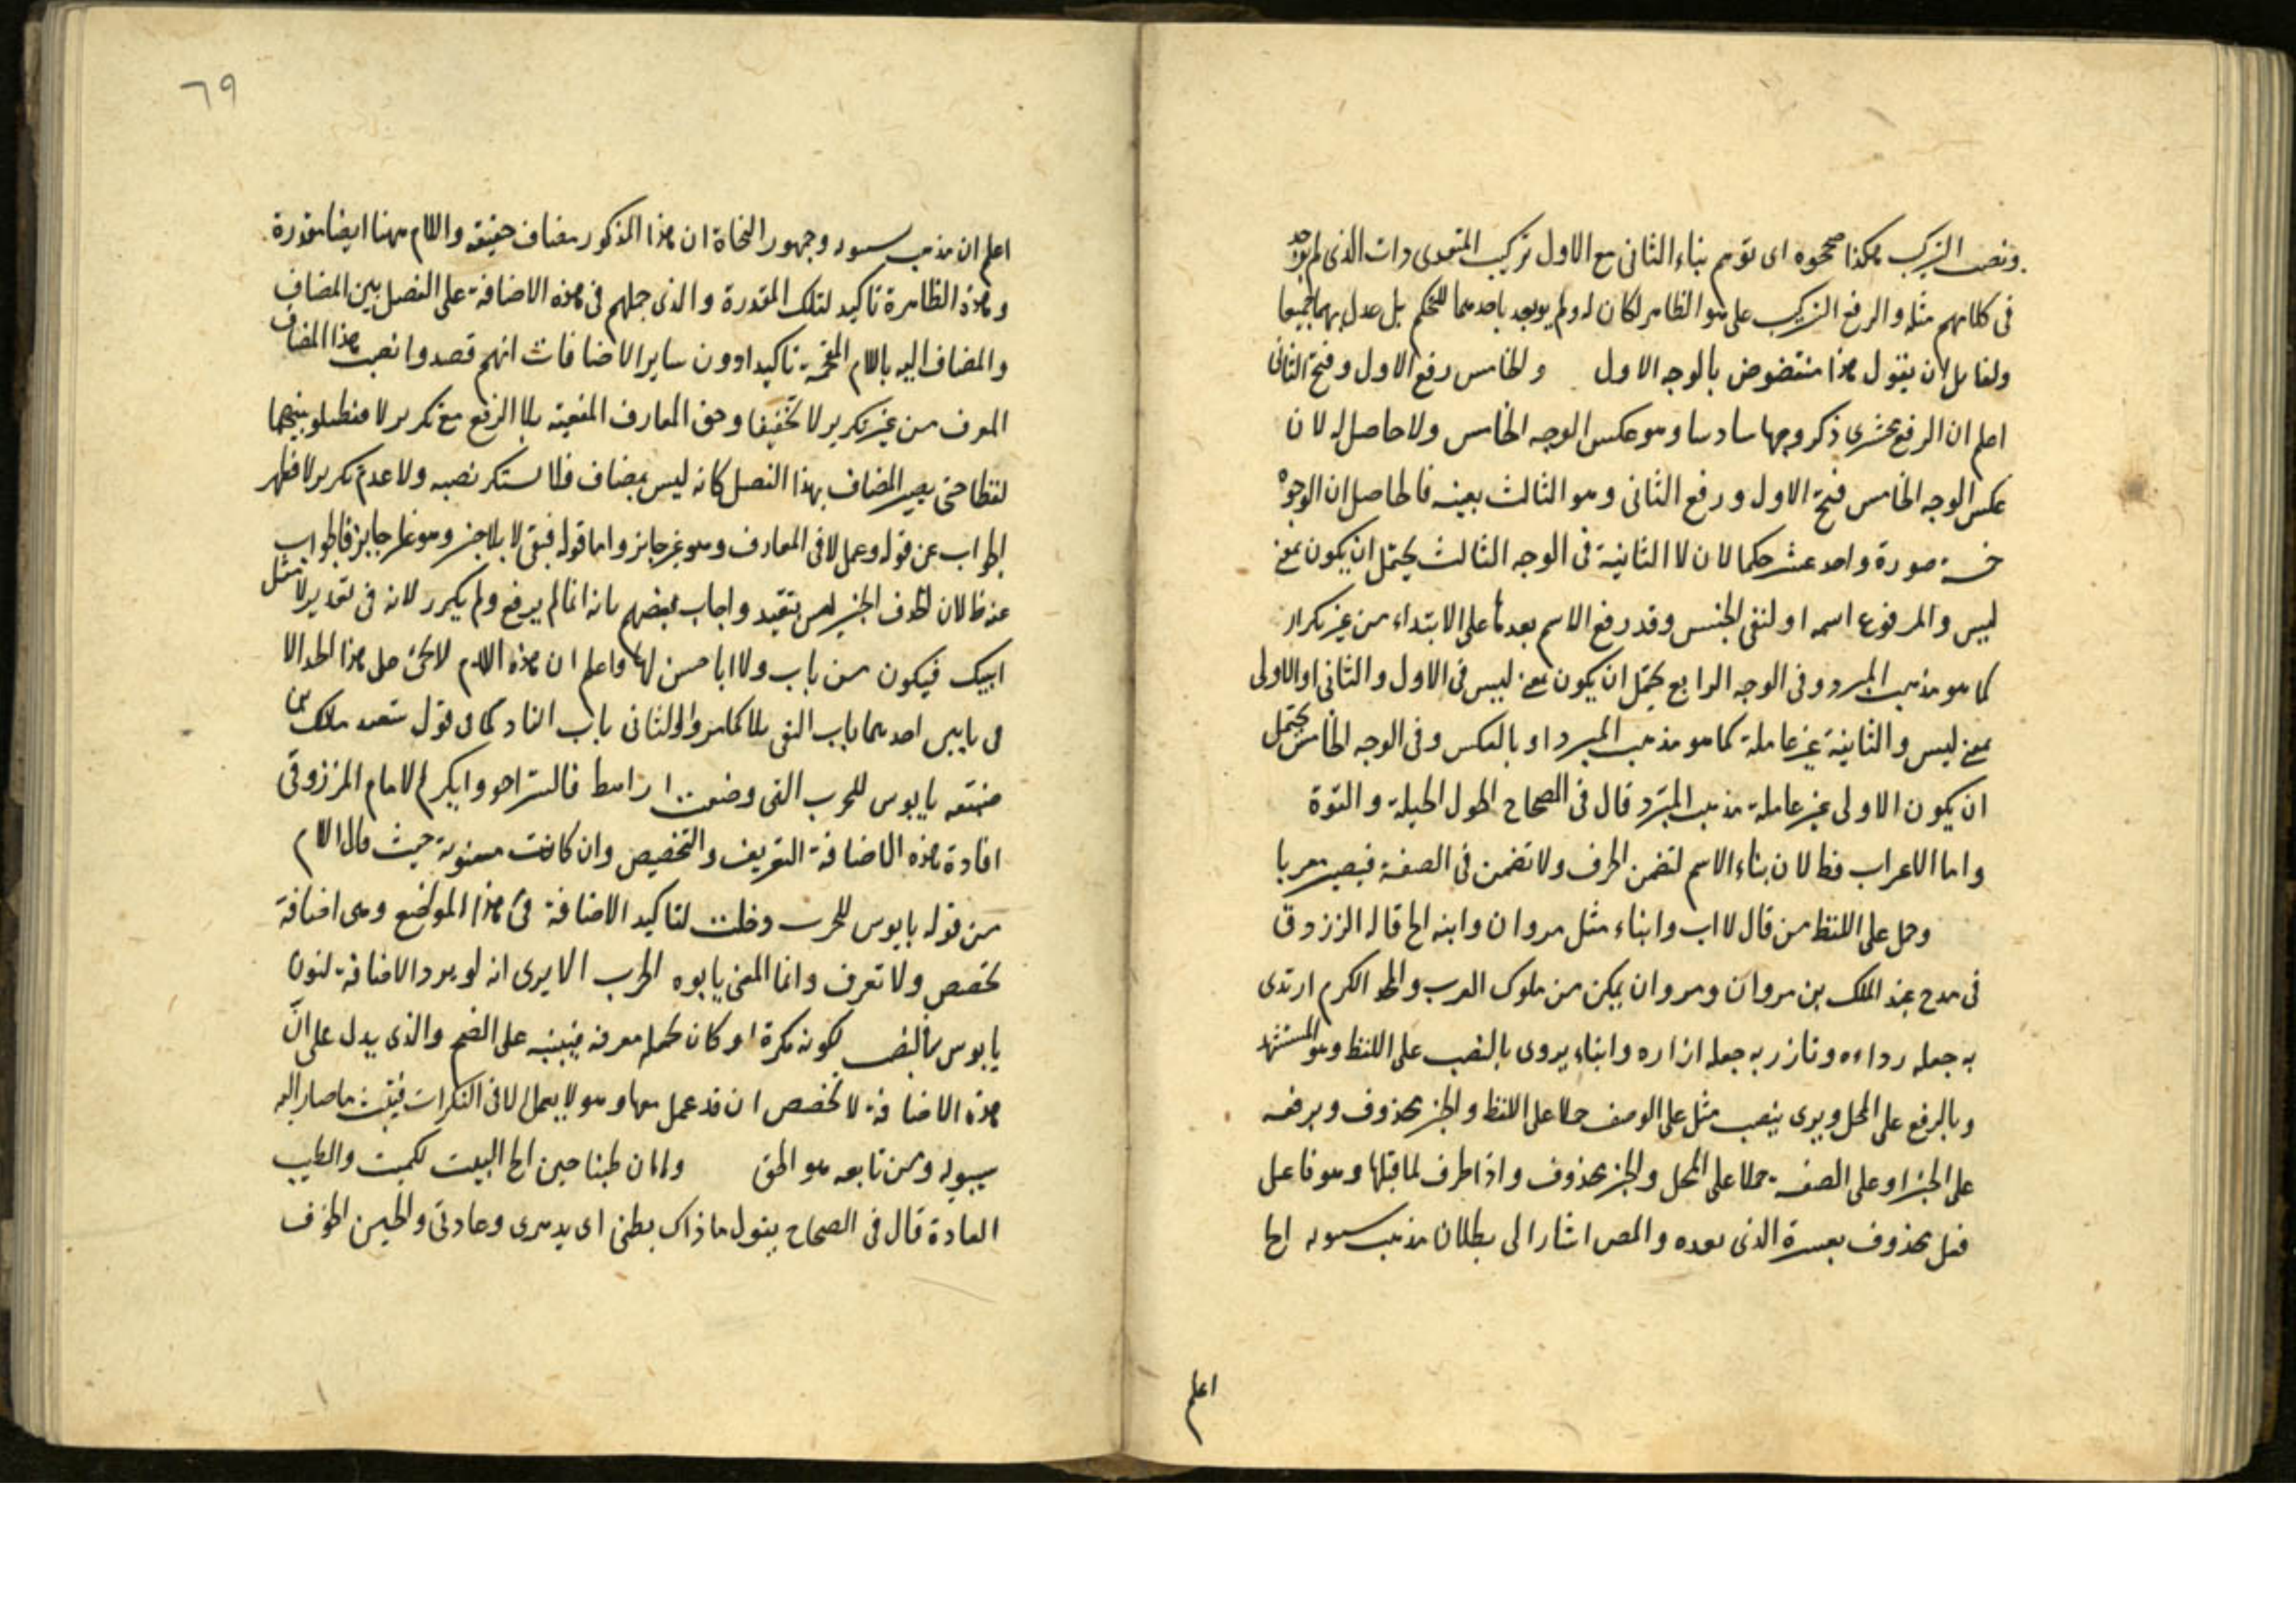 ونصب التركيب هكذا صححوه اى توهم بناء الثانى مع الاول تركيب المتعدى ذات الذى لم يوجد
فى كلامهم مثله والرفع التركيب على هو الظاهر لكان له ولم يوجد باحدهما للتحكم بل عدل بهما جميعا
ولقايل ان يقول هذا منتقوض بالوجه الاول والخامس رفع الاول وفتح الثانى
اعلم ان الرفع عشرى ذكر وجها سادسا وهو عكس الوجه الخامس ولا حاصل له لان
عكس الوجه الخامس فتح الاول ورفع الثانى وهو الثالث بعينه فالحاصل ان الوجوه
خمسة صورة واحد عشر حكما لان لا الثانية فى الوجه الثالث يحتمل ان يكون بمعنى
ليس والمرفوع اسمه او لنفى الجنس وقد رفع الاسم بعدها على الابتداء من غير تكرار
كما هو مذهب المبرد وفى الوجه الرابع يحتمل ان يكون بمعنى ليس فى الاول والثانى او الاولى
بمعنى ليس والثانية غير عاملة كما هو مذهب المبرد او بالعكس وفى الوجه الخامس يحتمل
ان يكون الاولى غير عاملة مذهب المبرد قال فى الصحاح الحول الحيلة والقوة
واما الاعراب فظ لان بناء الاسم لتضمن الحرف ولا تضمن فى الصفة فيصير معربا
وحمل على اللفظ من قال لا اب وابناء مثل مروان وابنه الخ قاله الفرزدق
فى مدح عبد الملك بن مروان ومروان يمكن من ملوك العرب والمجد الكرم ارتدى
به جعله رداءه وتازر به جعله ازاره وابناء يروى بالنصب على اللفظ وهو المستشهد
وبالرفع على المحل ويروى ينصب مثل على الوصف حملا على اللفظ والخبر محذوف وبرفعه
على الخبر او على الصفة حملا على المحل والخبر محذوف واذا ظرف لما قبلها وهو فاعل
فعل محذوف يفسره الذى بعده والمص اشار الى بطلان مذهب سيبويه الخ
اعلم
٦٩
اعلم ان مذهب سيبويه وجمهور النحاة ان هذا المذكور مضاف حقيقة واللام ههنا ايضا مقدرة
وهذه الظاهرة تاكيد لتلك المقدرة والذى حملهم فى هذه الاضافة على الفصل بين المضاف
والمضاف اليه باللام المقحمة تاكيدا دون ساير الاضافات انهم قصدوا نصب هذا المضاف
المعرف من غير تكرير لا تخفيفا وحق المعارف المنفية بلا الرفع مع تكرير لا ففصلوا بينهما
لفظا حتى يصير المضاف بهذا الفصل كانه ليس بمضاف فلا يستنكر نصبه ولا عدم تكرير لا فظهر
الجواب عن قوله وعمل لا فى المعارف وهو غير جايز واما قوله فبقى لا بلا خبر وهو غير جايز فالجواب
عنه ظ لان حذف الخبر ليس بتقيد واجاب بعضهم بانه انما لم يرفع ولم يكرر لانه فى تقدير لا مثل
ابيك فيكون من باب ولا ابا حسن لها واعلم ان هذه اللام لا تجئ على هذا الحد الا
فى بابين احدهما باب النفى بلا كما مر والثانى باب النداء كما فى قول سعد بن مالك
يا بوس للحرب التى وضعت اراهط فاستراحوا وانكر الامام المرزوقى
افادة هذه الاضافة التعريف والتخصيص وان كانت معنوية حيث قال اللام
من قوله يا بوس للحرب دخلت لتاكيد الاضافة فى هذا الموضع وهى اضافة
تخصص ولا تعرف وانما المعنى يا بوس الحرب الا يرى انه لو يرد الاضافة لنون
يا بوس بالنصب لكونه نكرة او كان يجعله معرفة فيبنيه على الضم والذى يدل على ان
هذه الاضافة لا تخصص ان قد عمل معها وهو لا يعمل الا فى النكرات فيثبت ما صار اليه
سيبويه ومن تابعه هو الحق وما ان طبنا جبن الخ البيت لكميت والطب
العادة قال فى الصحاح يقول ما ذاك بطبى اى بدهرى وعادتى والجبن الخوف